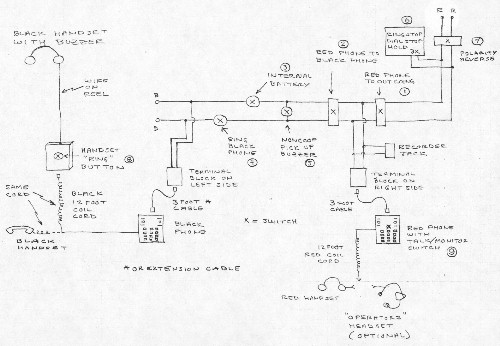 BLACK HANDSET
WITH BUZZER
WIRE
ON
REEL
HANDSET
"RING"
BUTTON
⑧
SAME
CORD
BLACK
12 FOOT
COIL
CORD
BLACK
HANDSET
③
INTERNAL
BATTERY
B
B
RING
BLACK
PHONE
④
NONCOOP
PICK UP
BUZZER
⑤
TERMINAL
BLOCK ON
LEFT SIDE
3 FOOT *
CABLE
BLACK
PHONE
* OR EXTENSION CABLE
X = SWITCH
②
RED PHONE TO
BLACK PHONE
RED PHONE
TO OUTGOING
①
⑥
RING STOP
DIAL STOP
HOLD
R R
⑦
POLARITY
REVERSE
RECORDER
JACK
TERMINAL
BLOCK ON
RIGHT SIDE
3 FOOT
CABLE
RED PHONE
WITH
TALK/MONITOR
SWITCH ⑨
12 FOOT
RED COIL
CORD
RED HANDSET
"OPERATORS"
HEADSET
(OPTIONAL)